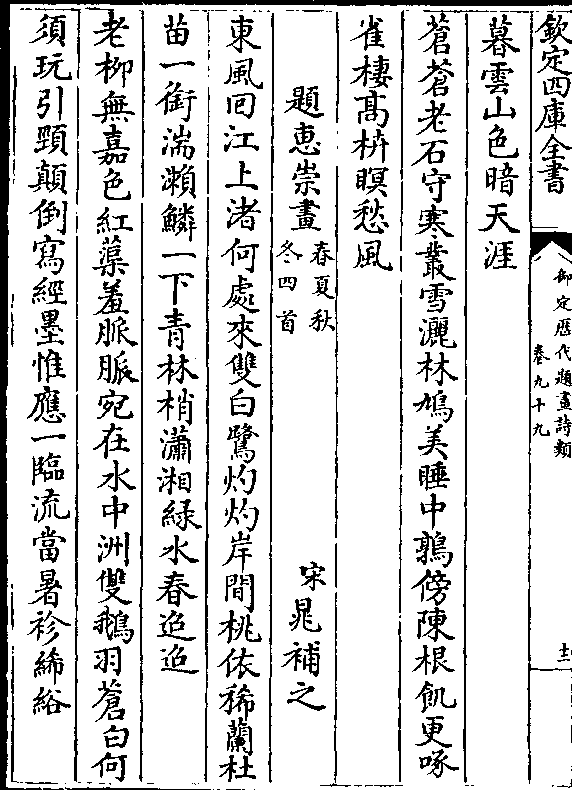 欽定四庫全書
御定歷代題畫詩類
卷九十九
十二
暮雲山色暗天涯
蒼蒼老石守寒叢雪灑林鳩美睡中鶉傍陳根飢更啄
雀棲高枿瞑愁風
題惠崇畫春夏秋冬四首
宋晁補之
東風回江上渚何處來雙白鷺灼灼岸間桃依稀蘭杜
苗一銜湍瀨鱗一下青林梢瀟湘緑水春迢迢
老柳無嘉色紅蕖羞脈脈宛在水中洲雙鵝羽蒼白何
須玩引頸顛倒寫經墨惟應一臨流當暑袗絺綌